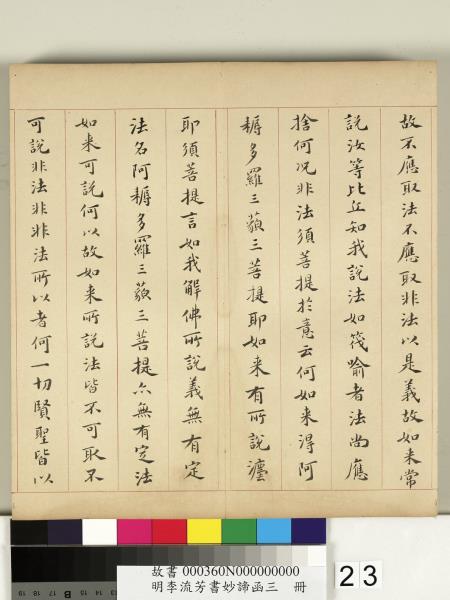 故不應取法不應取非法以是義故如来常
說汝等比丘知我說法如筏喻者法尚應
捨何况非法須菩提於意云何如来得阿
耨多羅三藐三菩提耶如来有所說灋
耶須菩提言如我解佛所說義無有定
法名阿耨多羅三藐三菩提亦無有定法
如来可說何以故如来所說法皆不可取不
可說非法非非法所以者何一切賢聖皆以
故書 000360N000000000
明李流芳書妙諦函三 冊
23